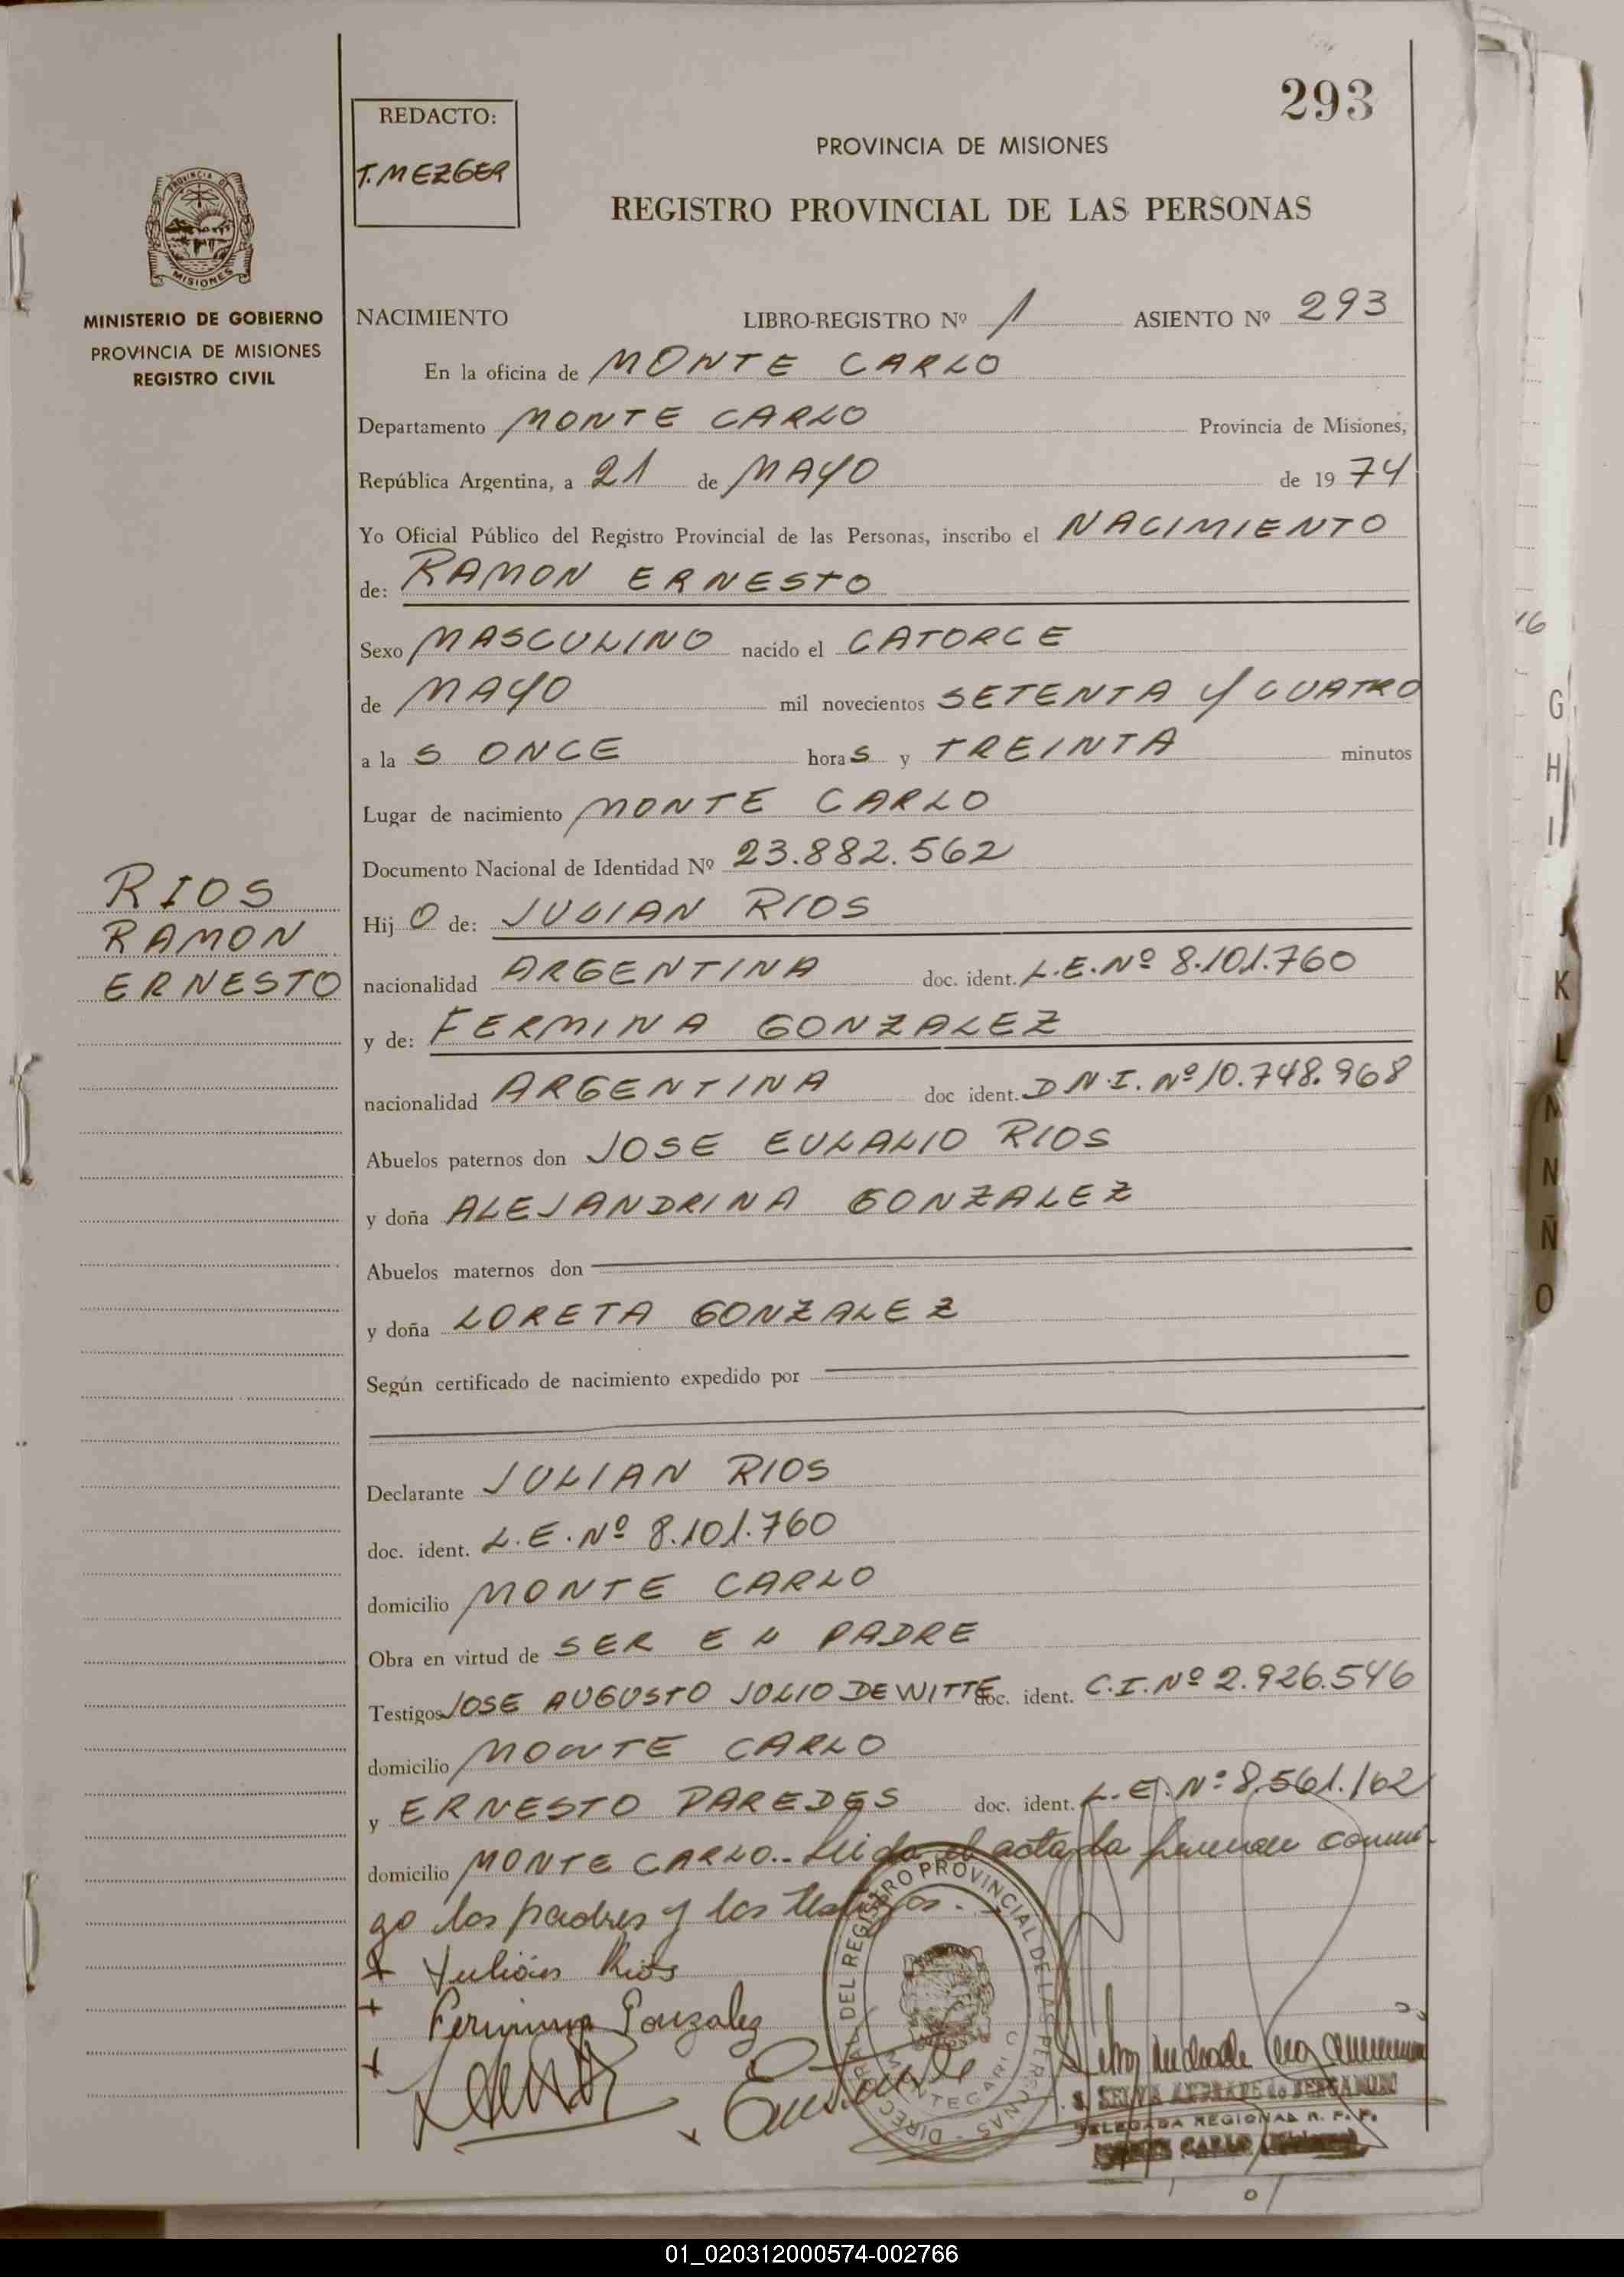 293
REDACTO:
T. MEZGER
PROVINCIA DE MISIONES
REGISTRO PROVINCIAL DE LAS PERSONAS
PROVINCIA DE
MISIONES
MINISTERIO DE GOBIERNO
PROVINCIA DE MISIONES
REGISTRO CIVIL
NACIMIENTO LIBRO-REGISTRO Nº 1 ASIENTO Nº 293
En la oficina de MONTE CARLO
Departamento MONTE CARLO Provincia de Misiones,
República Argentina, a 21 de MAYO de 19 74
Yo Oficial Público del Registro Provincial de las Personas, inscribo el NACIMIENTO
de: RAMON ERNESTO
Sexo MASCULINO nacido el CATORCE
de MAYO mil novecientos SETENTA Y CUATRO
a la S ONCE hora S y TREINTA minutos
Lugar de nacimiento MONTE CARLO
Documento Nacional de Identidad Nº 23.882.562
RIOS
RAMON
ERNESTO
Hij O de: JULIAN RIOS
nacionalidad ARGENTINA doc. ident. L.E.Nº 8.101.760
y de: FERMINA GONZALEZ
nacionalidad ARGENTINA doc ident. D N.I. Nº 10.748.968
Abuelos paternos don JOSE EULALIO RIOS
y doña ALEJANDRINA GONZALEZ
Abuelos maternos don
y doña LORETA GONZALEZ
Según certificado de nacimiento expedido por
Declarante JULIAN RIOS
doc. ident. L.E.Nº 8.101.760
domicilio MONTE CARLO
Obra en virtud de SER EL PADRE
Testigos JOSE AUGUSTO JULIO DE WITTE doc. ident. C.I.Nº 2.926.546
domicilio MONTE CARLO
y ERNESTO PAREDES doc. ident. L.E.Nº 8.561.162
domicilio MONTE CARLO.- Leida el acta la firman conmi-
go los padres y los testigos.-
Julián Rios
Fermina Gonzalez
DIRECC. GRAL. DEL REGISTRO PROVINCIAL DE LAS PERSONAS
S. SELVA ANDRADE de BERGAMINI
DELEGADA REGIONAL R. P. P.
16
G
H
I
J
K
L
M
N
Ñ
O
01_020312000574-002766